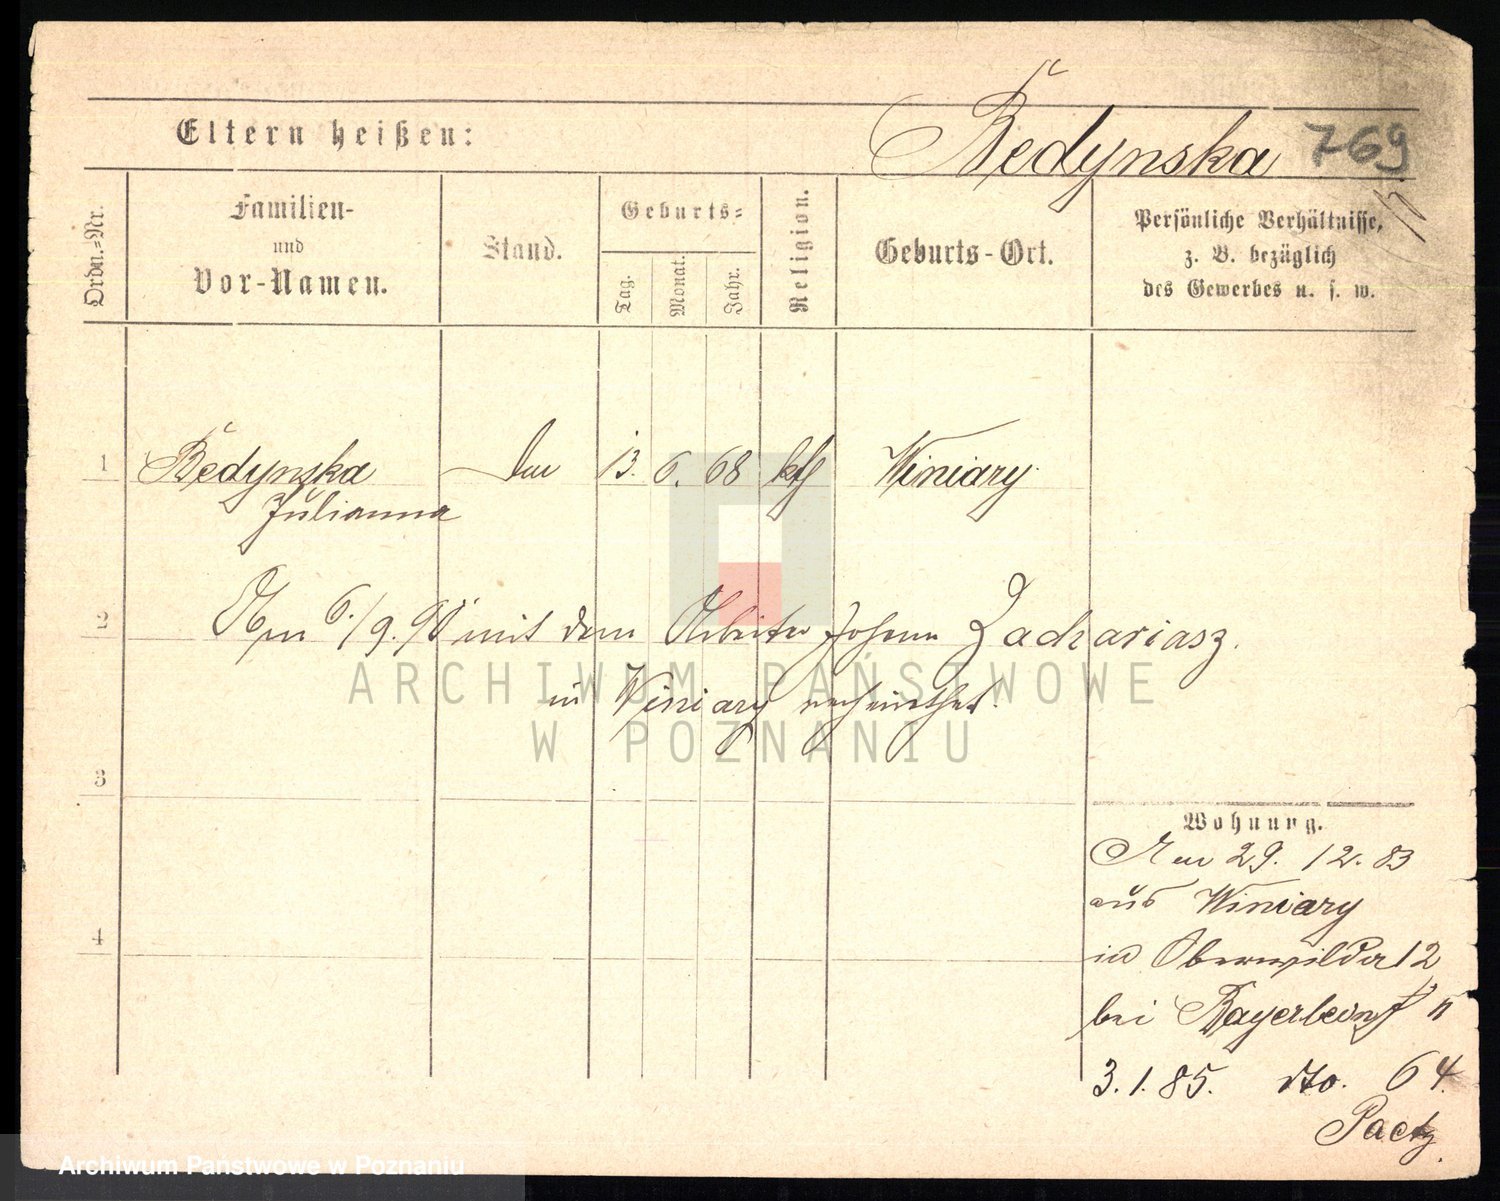 Eltern heißen:
Bedynska 769
Ordn.=Nr.
Familien-
und
Vor-Namen.
Stand.
Geburts=
Tag.
Monat.
Jahr.
Religion.
Geburts-Ort.
Persönliche Verhältnisse,
z. B. bezüglich
des Gewerbes u. s. w.
1 Bedynska 13. 6. 68 kth Winiary
Julianna
2 Am 6./9. 90 mit dem Arbeiter Johann Zachariasz.
in Winiary verheirathet.
3
4
Wohnung.
Am 29. 12. 83
aus Winiary
in Oberwilda 12
bei
3. 1. 85. dto. 64.
ARCHIWUM PAŃSTWOWE
W POZNANIU
Archiwum Państwowe w Poznaniu